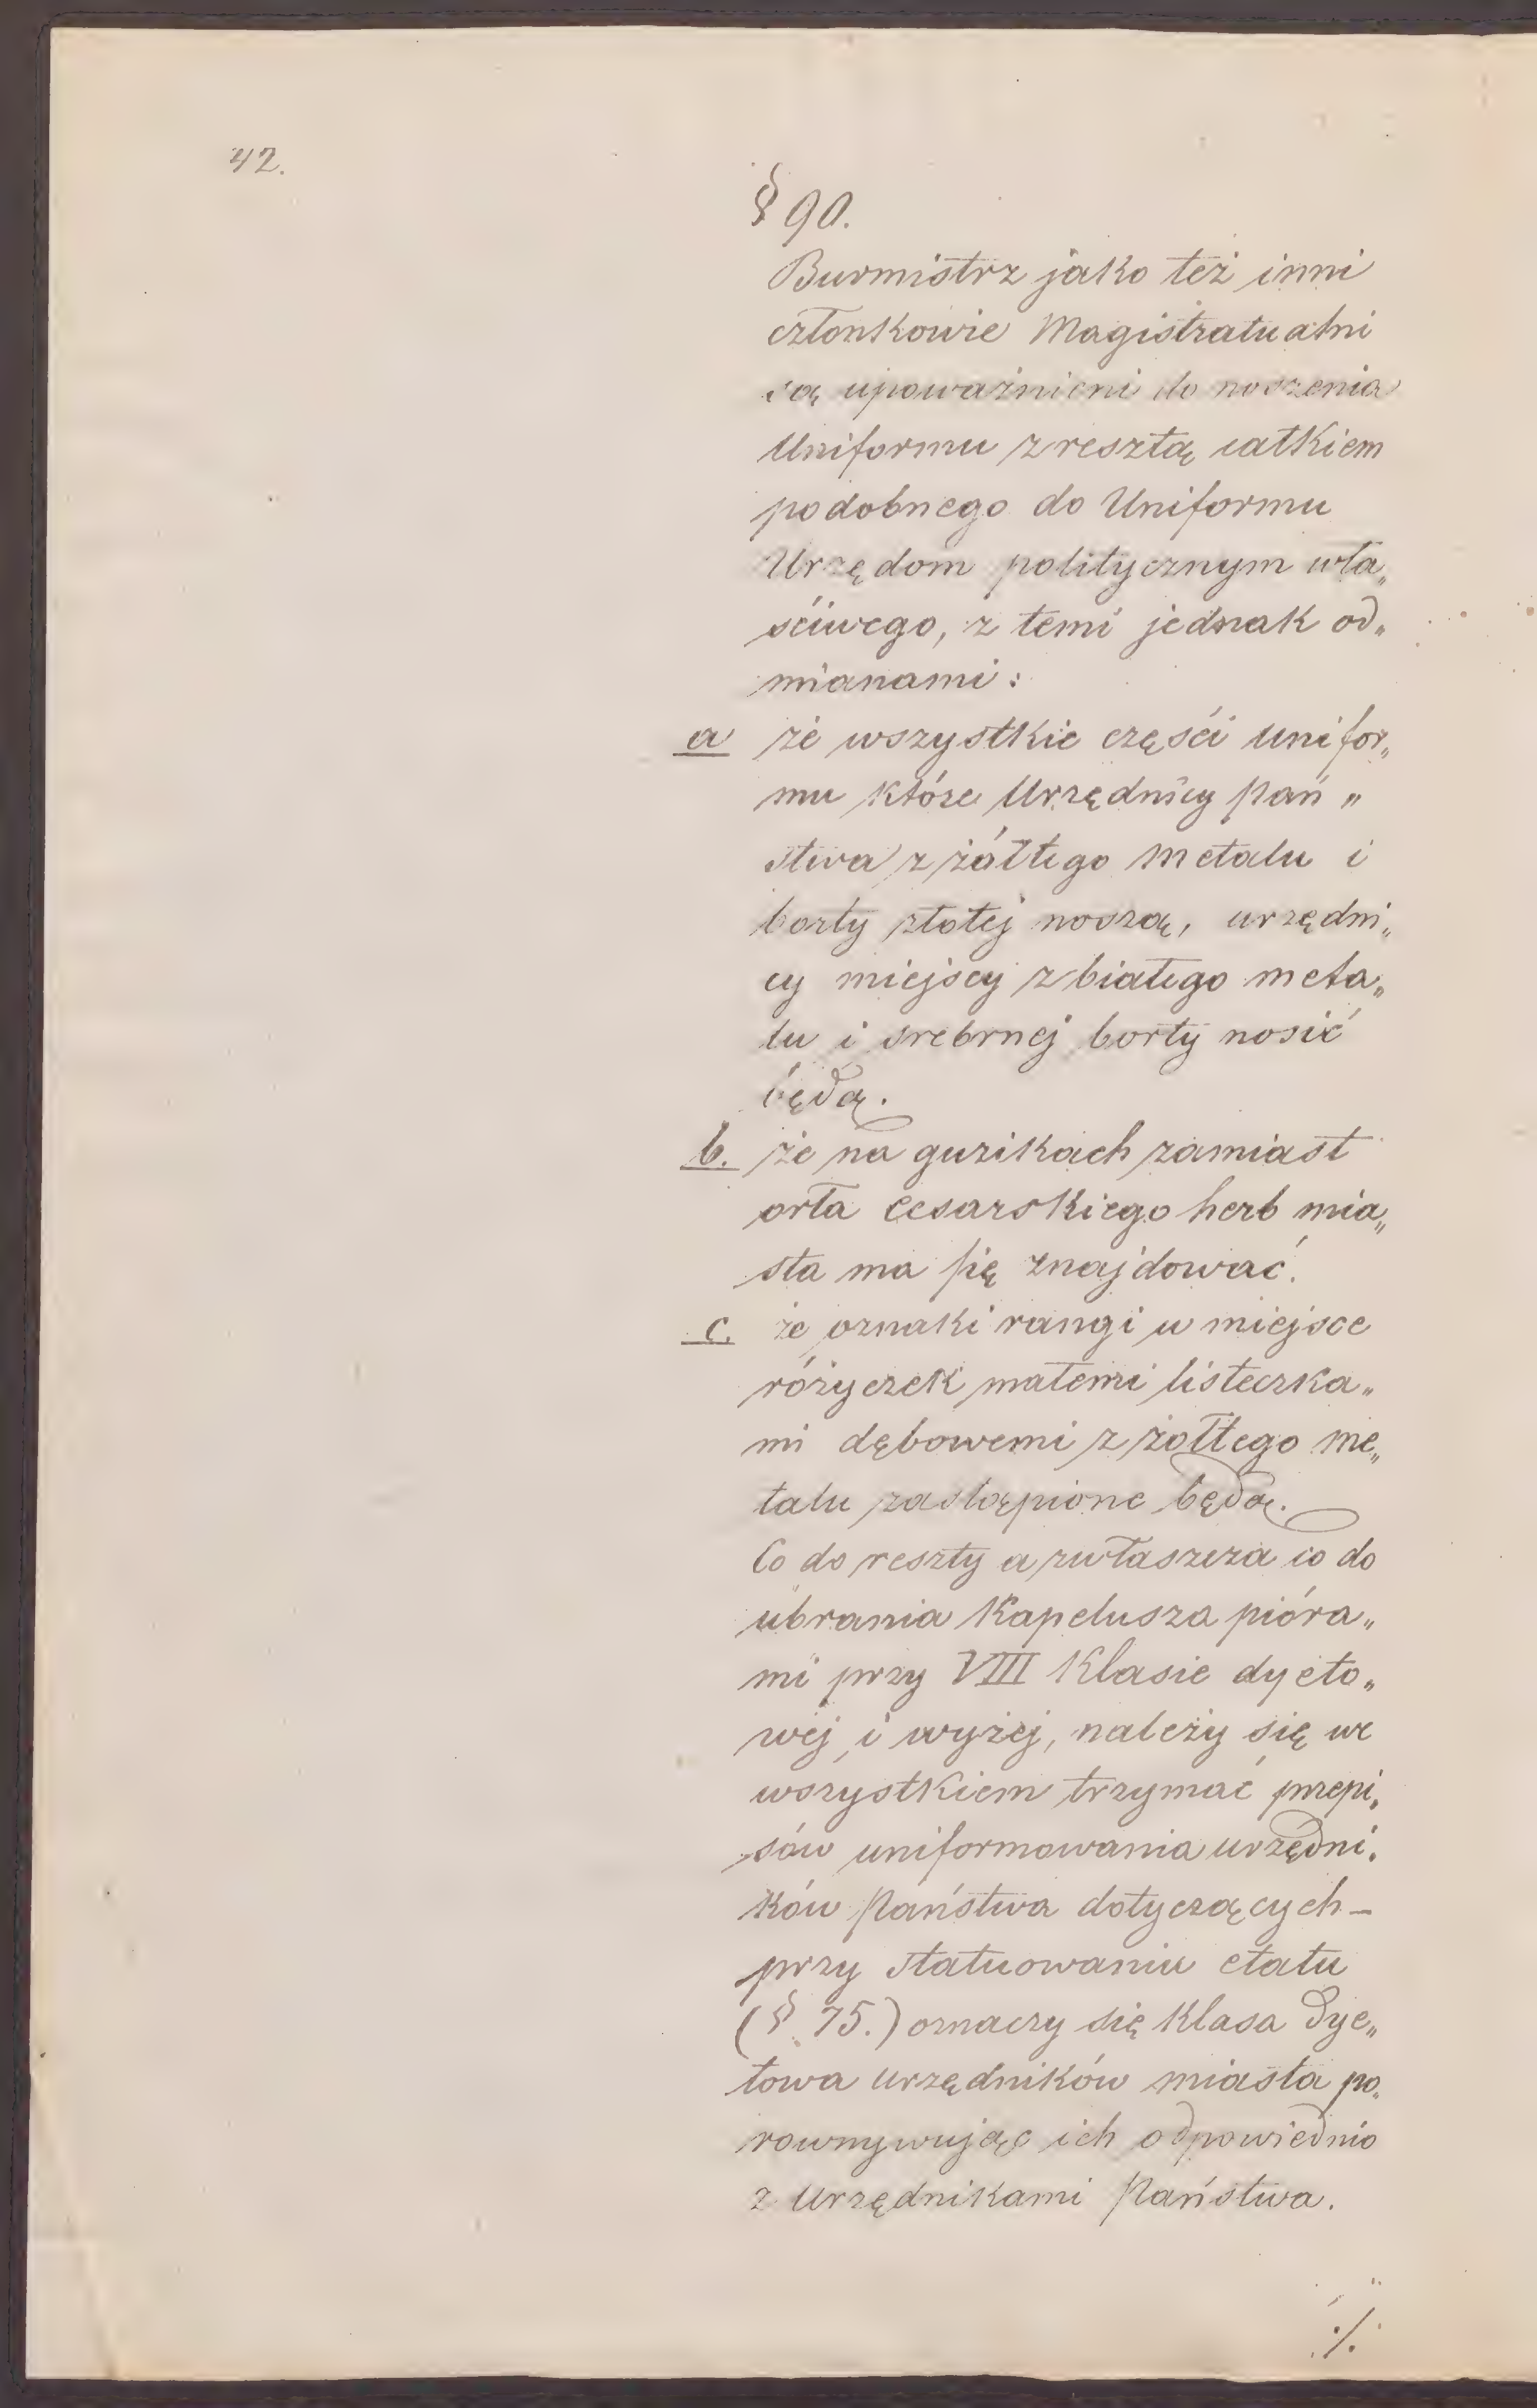 42.
§ 90.
Burmistrz jako też inni
członkowie Magistratualni
są upoważnieni do noszenia
Uniformu zresztą całkiem
podobnego do Uniformu
Urzędom politycznym wła„
ściwego, z temi jednak od„
mianami:
a że wszystkie części unifor„
mu które Urzędnicy Pań„
stwa z żółtego metalu i
borty złotej noszą, urzędni„
cy miejscy z białego meta„
lu i srebrnej borty nosić
będą.
b. że na guzikach zamiast
orła Cesarskiego herb mia„
sta ma się znajdować.
c. że oznaki rangi w miejsce
różyczek małemi listeczka„
mi dębowemi z żółtego me„
talu zastąpione będą.
Co do reszty a zwłaszcza co do
ubrania Kapelusza pióra„
mi przy VIII Klasie dyeto„
wej i wyżej, należy się we
wszystkiem trzymać przepi„
sów uniformowania urzędni„
ków Państwa dotyczących –
przy statuowaniu etatu
(§ 75.) oznaczy się Klasa dye„
towa urzędników miasta po„
rownywując ich odpowiednio
z Urzędnikami Państwa.
./.